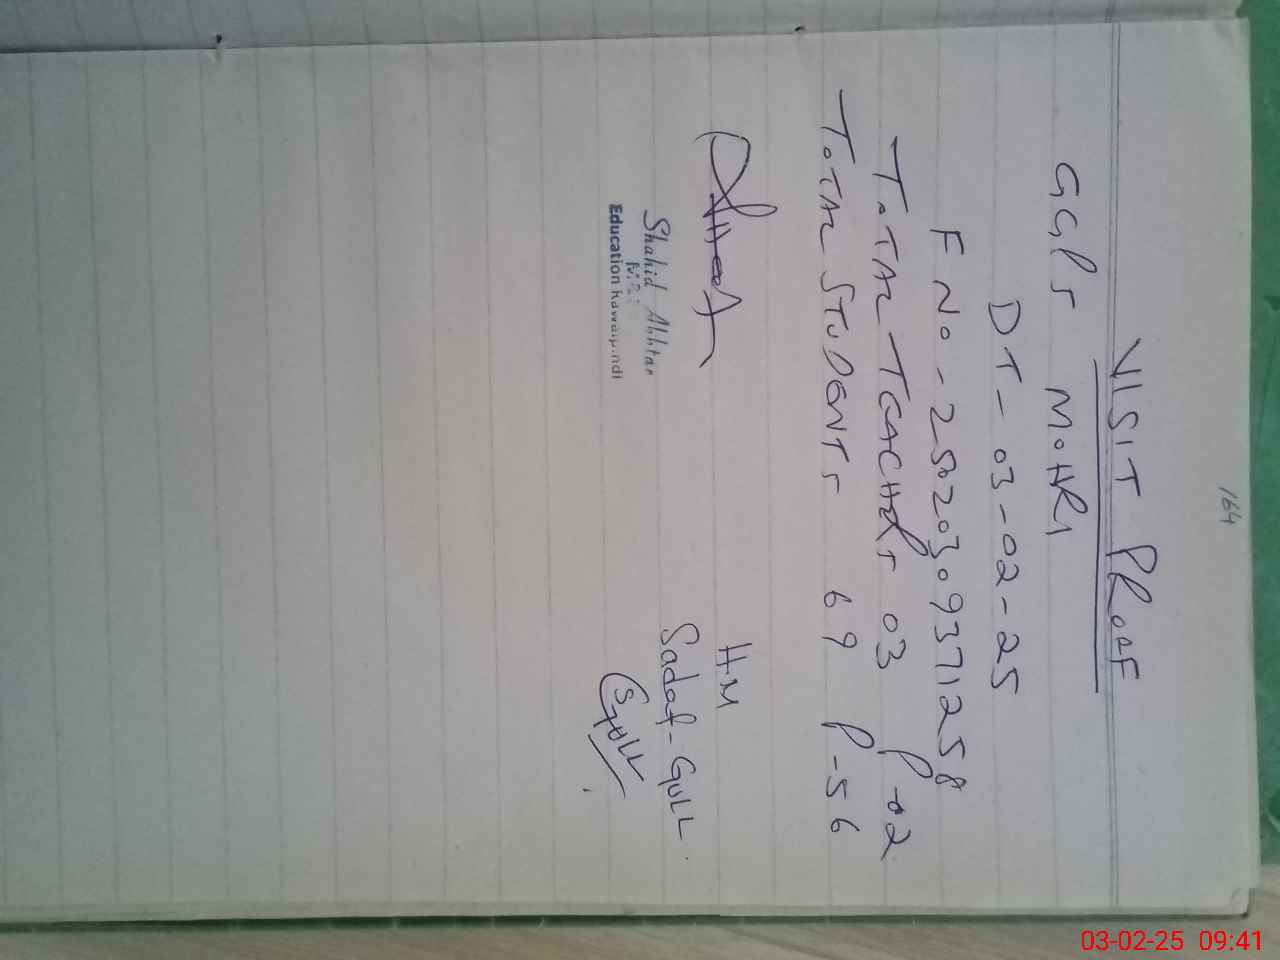 164
VISIT PROOF
GGPS MOHRI
DT - 03-02-25
F No - 25020309371258
TOTAL TEACHERS 03 P-02
TOTAL STUDENTS 69 P-56
HM
Sadaf-GULL
SGULL
Shahid Akhtar
Education Rawalpindi
03-02-25 09:41